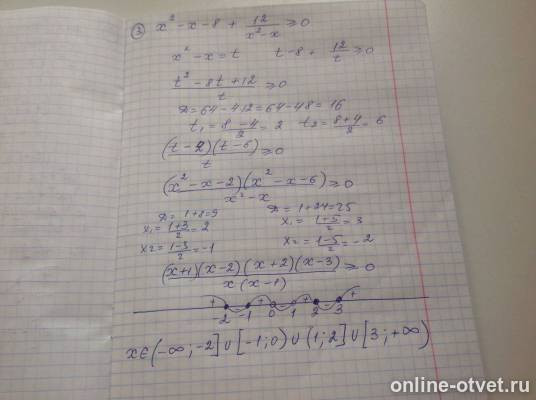 ③ x² - x - 8 + 12/(x² - x) ⩾ 0
x² - x = t   t - 8 + 12/t ⩾ 0
(t² - 8t + 12)/t ⩾ 0
D = 64 - 4·12 = 64 - 48 = 16
t₁ = (8 - 4)/2 = 2   t₂ = (8 + 4)/2 = 6
(t - 2)(t - 6)/t ⩾ 0
(x² - x - 2)(x² - x - 6)/(x² - x) ⩾ 0
D = 1 + 8 = 9   D = 1 + 24 = 25
x₁ = (1 + 3)/2 = 2   x₁ = (1 + 5)/2 = 3
x₂ = (1 - 3)/2 = -1   x₂ = (1 - 5)/2 = -2
(x + 1)(x - 2)(x + 2)(x - 3)/(x(x - 1)) ⩾ 0
+ - + - + - +
-2 -1 0 1 2 3
x ∈ (-∞; -2] ∪ [-1; 0) ∪ (1; 2] ∪ [3; +∞)
online-otvet.ru